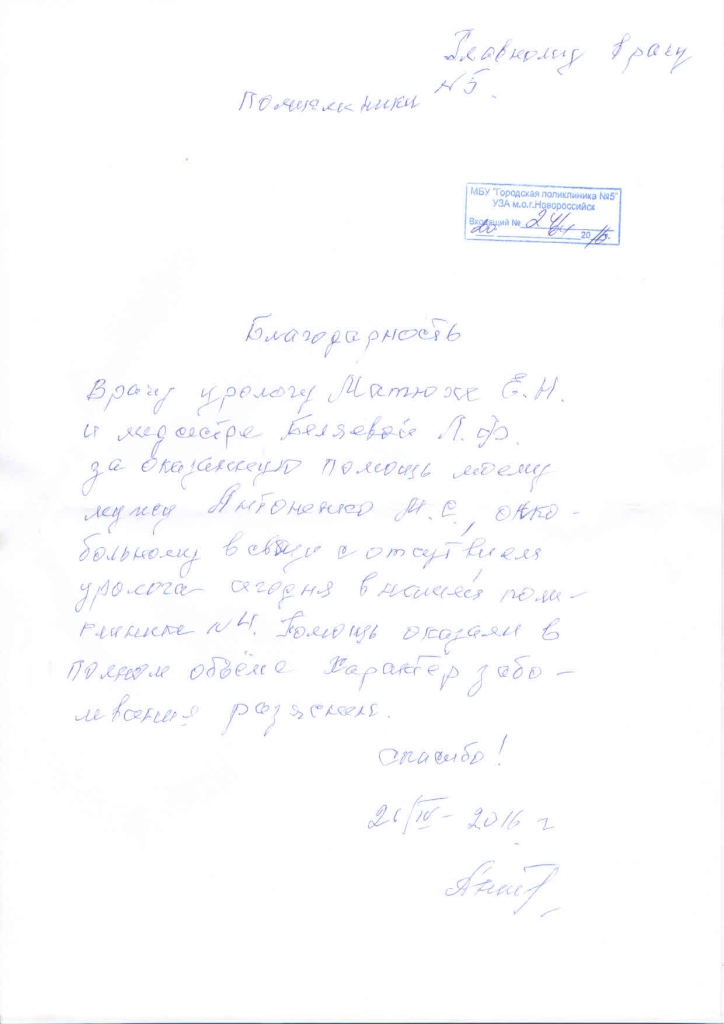 Главному врачу
Поликлиники №5.
МБУ "Городская поликлиника №5"
УЗА м.о.г.Новороссийск
Входящий № 24/
20 04 2016г.
Благодарность
Врачу урологу Матюхе Е.Н.
и медсестре Беляевой Л.Ф.
за оказанную помощь моему
мужу Антоненко М.С., онко-
больному в связи с отсутвием
уролога сегодня в нашей поли-
клинике №4. Помощь оказали в
полном объёме Характер забо-
левания разяснен.
Спасибо!
/IV - 2016 г